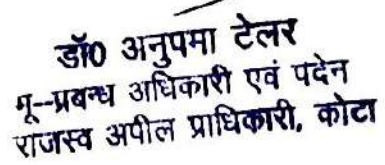 डॉ0 अनुपमा टेलर
भू--प्रबन्ध अधिकारी एवं पदेन
राजस्व अपील प्राधिकारी, कोटा